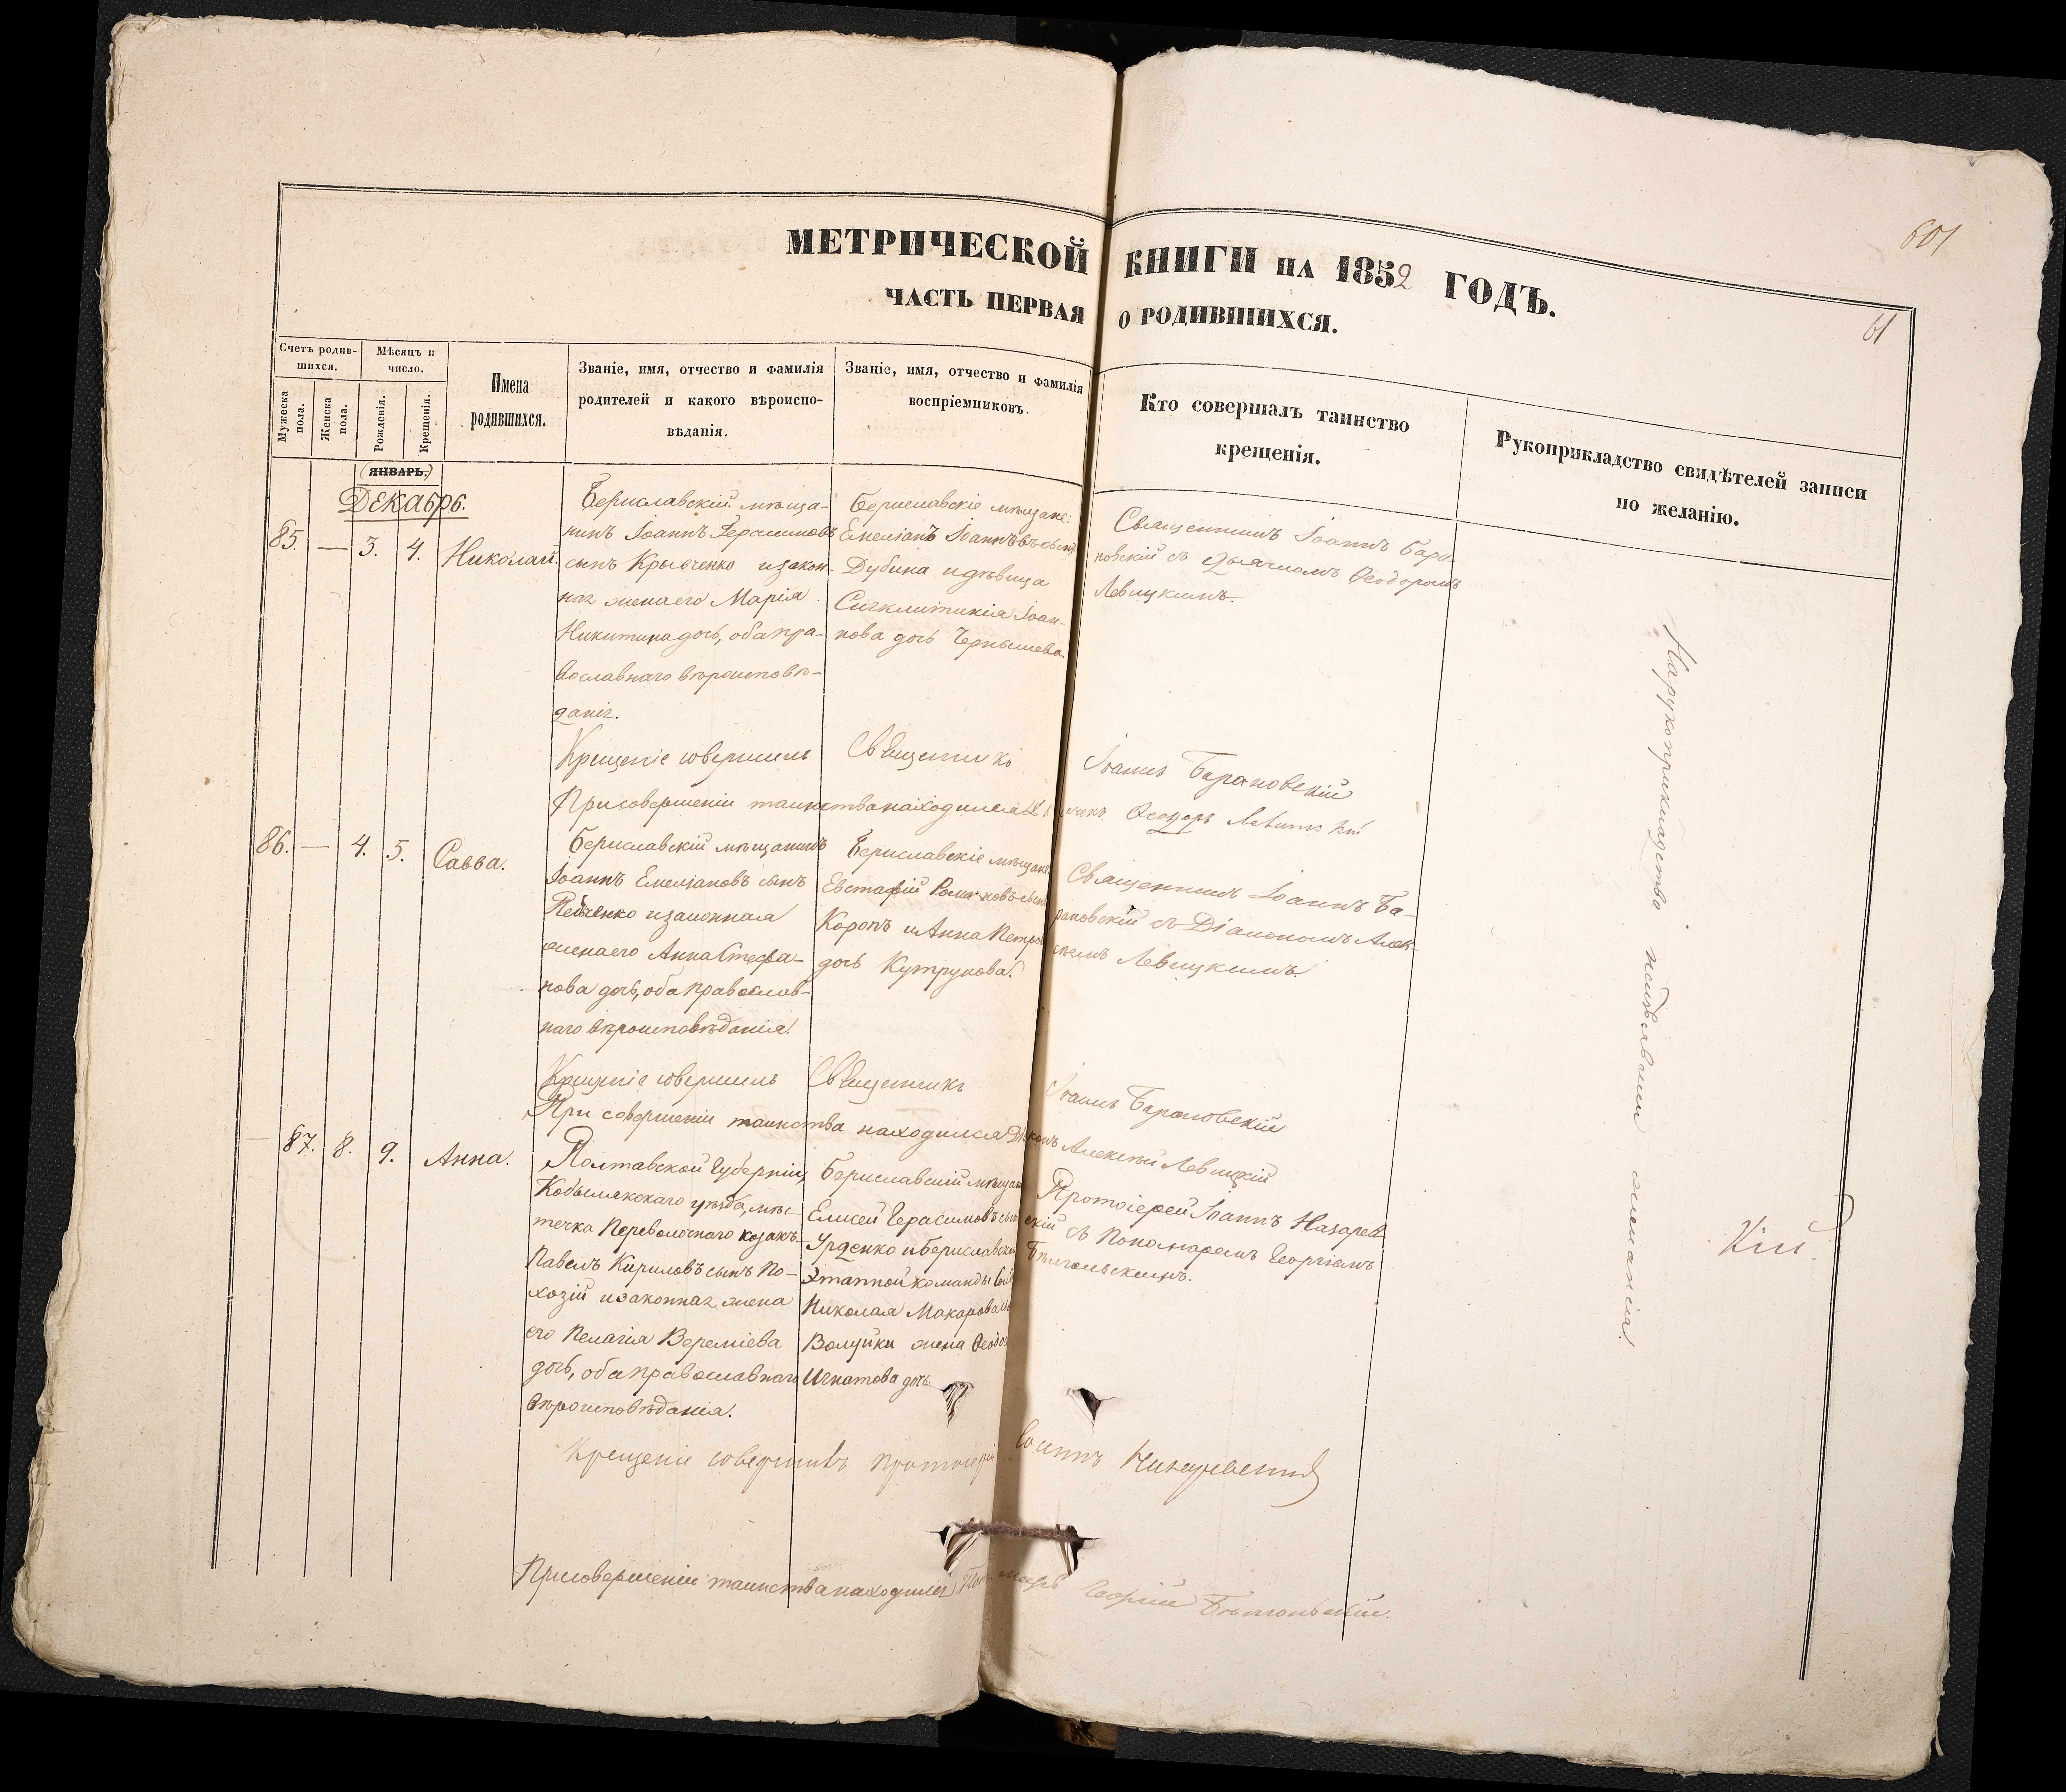 601
МЕТРИЧЕСКОЙ КНИГИ НА 1852 ГОДЪ.
61
ЧАСТЬ ПЕРВАЯ О РОДИВШИХСЯ.
Счетъ родив-
шихся.
Мужеска пола.
Женска пола.
Мѣсяцъ и
число.
Рожденія.
Крещенія.
Имена
родившихся.
Званіе, имя, отчество и фамилія
родителей и какого вѣроиспо-
вѣданія.
Званіе, имя, отчество и фамилія
воспріемниковъ.
Кто совершалъ таинство
крещенія.
Рукоприкладство свидѣтелей записи
по желанію.
ЯНВАРЬ.
Декабрь.
85. — 3. 4. Николай.
Бериславскій мѣща-
нинъ Іоаннъ Герасимовъ
сынъ Крывченко и закон-
ная жена его Марія
Никитина дочь, оба пра-
вославнаго вѣроисповѣ-
данія.
Бериславскіе мѣщане:
Емеліанъ Іоанновъ сынъ
Дубина и дѣвица
Сигклитикія Іоан-
нова дочь Чернышева
Священникъ Іоаннъ Бара-
новскій съ Дьячкомъ Ѳеодоромъ
Левицкимъ.
Крещеніе совершилъ Священникъ Іоаннъ Барановскій
При совершеніи таинства находился Дьячокъ Ѳеодоръ Левицкій
86. — 4. 5. Савва.
Бериславскій мѣщанинъ
Іоаннъ Емеліановъ сынъ
и законная
жена его Анна Стефа-
нова дочь, оба православ-
наго вѣроисповѣданія.
Бериславскіе мѣщане
Евстафій Романовъ сынъ
Коропъ и Анна Петрова
дочь Кутрунова.
Священникъ Іоаннъ Ба-
рановскій съ Діакономъ Алек-
сѣемъ Левицкимъ.
Крещеніе совершилъ Священникъ Іоаннъ Барановскій
При совершеніи таинства находился Діаконъ Алексѣй Левицкій
— 87. 8. 9. Анна.
Полтавской Губерніи,
Кобылякскаго уѣзда, мѣс-
течка Переволочнаго козакъ
Павелъ Кириловъ сынъ По-
хозій и законная жена
его Пелагія Веремѣева
дочь, оба православнаго
вѣроисповѣданія.
Бериславскій мѣщанинъ
Елисей Герасимовъ сынъ
Урденко и Бериславской
Этапной команды
Николая Макарова
Волуйки жена
Игнатова дочь.
Протоіерей Іоаннъ Назарев-
скій съ Пономаремъ Георгіемъ
Крещеніе совершилъ Протоіерей Іоаннъ Назаревскій
При совершеніи таинства находился Пономарь Георгій
На рукоприкладство неизъявили желанія.
Кій.